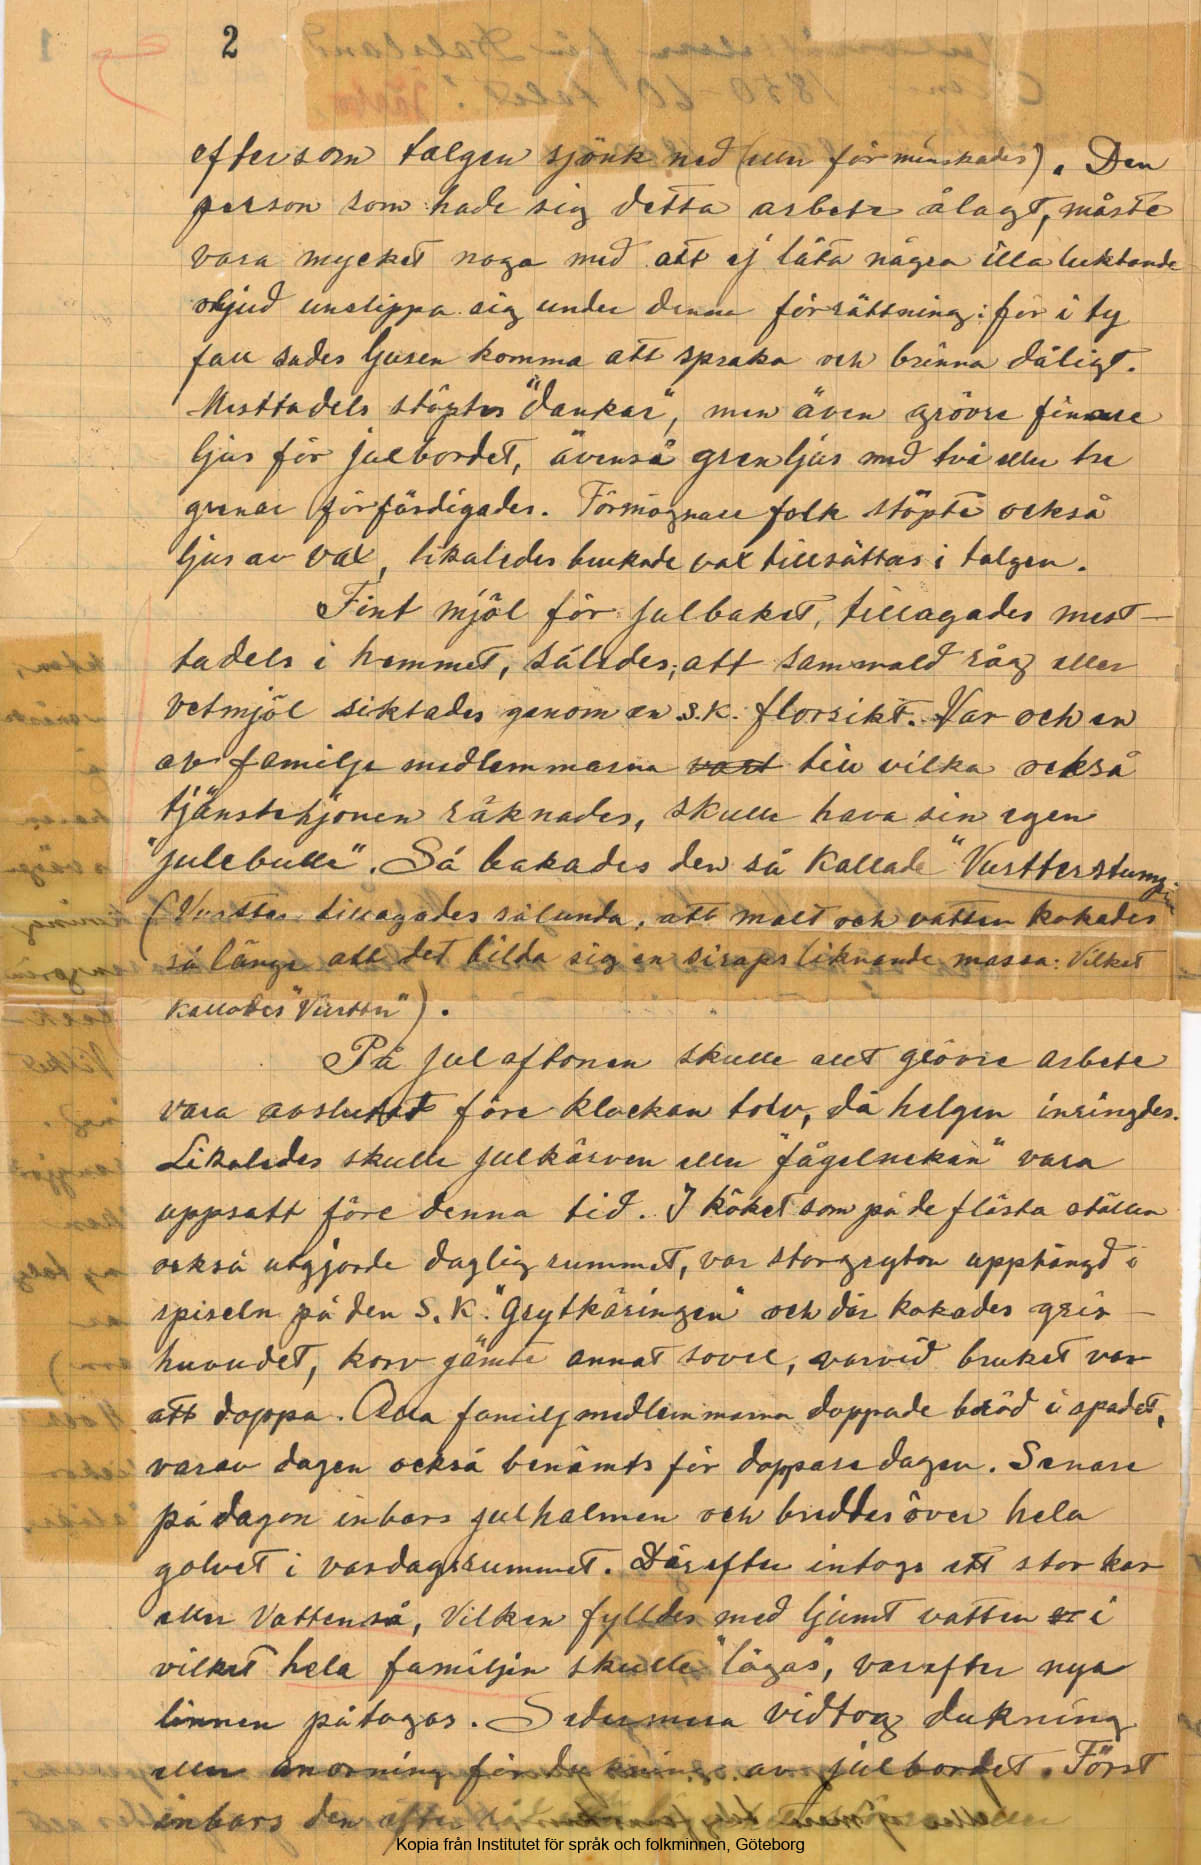 2
eftersom talgen sjönk ned (eller förminskades). Den
person som hade sig detta arbete ålagt, måste
vara mycket noga med att ej låta några illa luktande
oljud unslippa sig under denna förrättning: för i ty
fall sades ljusen komma att spraka och brinna dåligt.
Mesttadels stöptes "dankar", men även grövre finare
ljus för julbordet, ävenså grenljus med två eller tre
grenar förfärdigades. Förmögnare folk stöpte också
ljus av vax, likaledes brukade vax tillsättas i talgen.
Fint mjöl för julbaket, tillagades mest-
tadels i hemmet, således; att sammald råg eller
vetmjöl siktades genom en s.k. florsikt. Var och en
av familje medlemmarna vart till vilka också
tjänstehjonen räknades, skulle hava sin egen
"julebulle". Så bakades den så kallade "Vurtter
(Vurtter tillagades sålunda, att malt och vatten kokades
så länge att det bilda sig en siraps liknande massa: Vilket
kallades "Vurtter").
På julaftonen skulle allt grövre arbete
vara avslutat före klockan tolv, då helgen inringdes.
Likaledes skulle julkärven eller "fågelneken" vara
uppsatt före denna tid. I köket som på de flästa ställen
också utgjorde daglig rummet, var storgrytan upphängd i
spiseln på den s.k. "Grytkäringen" och där kokades gris-
huvudet, korv jämte annat sovel, varvid bruket var
att doppa. Alla familjmedlemmarna doppade bröd i spadet,
varav dagen också benämts för dopparedagen. Senare
på dagen inbars julhalmen och breddes över hela
golvet i vardagsrummet. Därefter intogs ett stor kar
eller vattenså, vilken fylldes med ljumt vatten i
vilket hela familjen skulle "lögas", varefter nya
linnen påtogos. Sedermera vidtog dukning
eller anorning för dukning av julbordet. Först
inbars den efter
Kopia från Institutet för språk och folkminnen, Göteborg